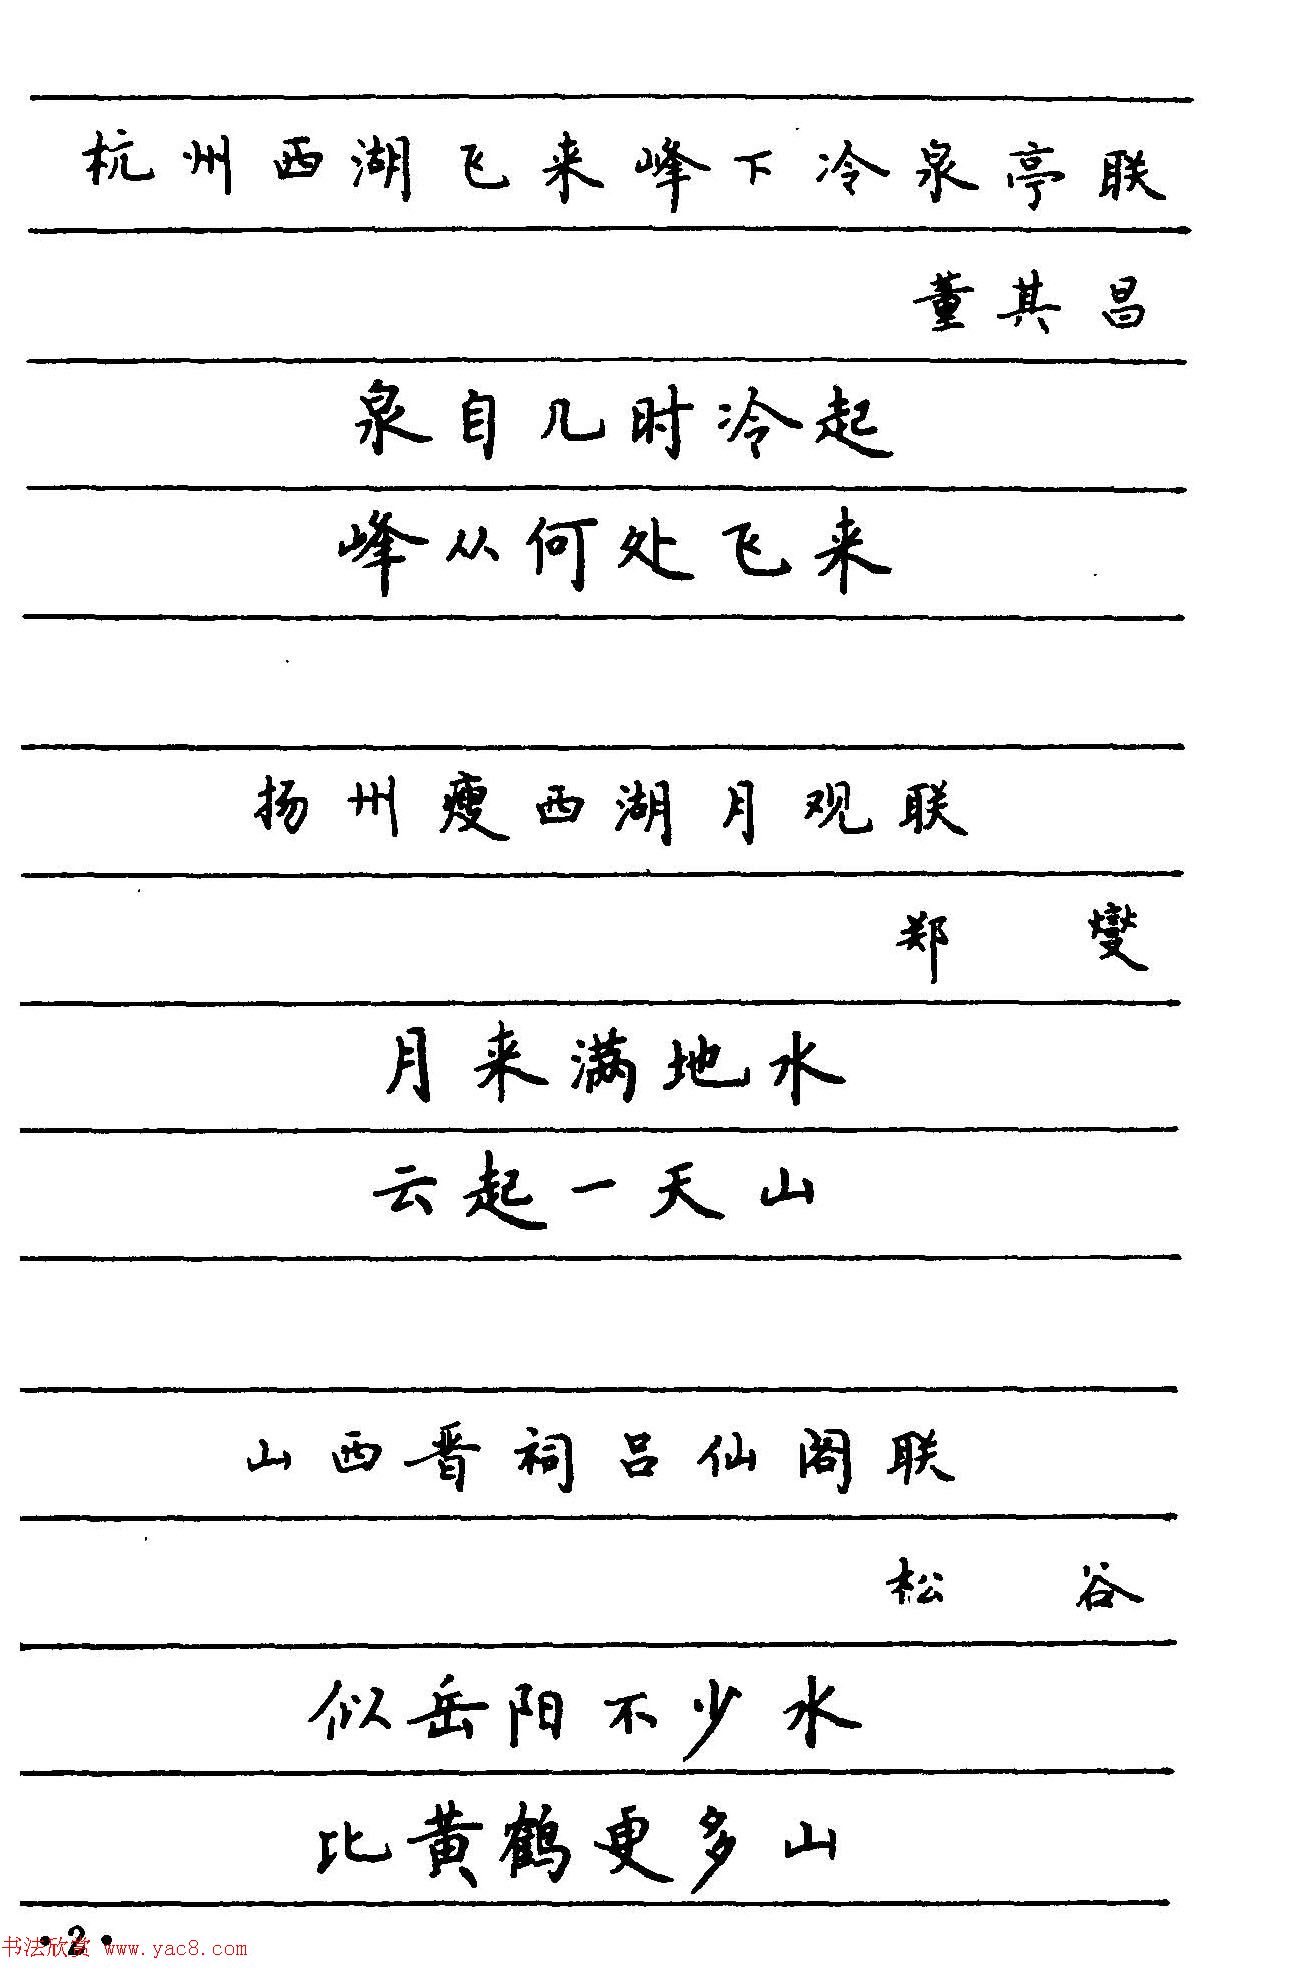 杭州西湖飞来峰下冷泉亭联
董其昌
泉自几时冷起
峰从何处飞来
扬州瘦西湖月观联
郑燮
月来满地水
云起一天山
山西晋祠吕仙阁联
松谷
似岳阳不少水
比黄鹤更多山
·2·
书法欣赏 www.yac8.com